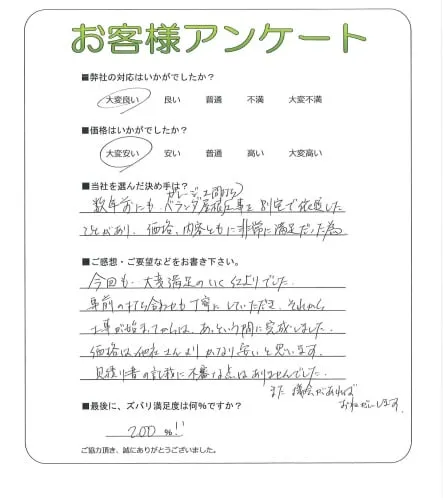 お客様アンケート
■弊社の対応はいかがでしたか?
大変良い 良い 普通 不満 大変不満
■価格はいかがでしたか?
大変安い 安い 普通 高い 大変高い
■当社を選んだ決め手は?
数年前にも、ベランダ屋根工事を別宅で依頼した
ことがあり、価格、内容ともに非常に満足だった為
■ご感想・ご要望などをお書き下さい。
今回も、大変満足のいく仕上りでした。
事前の打ち合わせも丁寧にしていただき、それから
工事が始まってからは、あっという間に完成しました。
価格は他社さんよりかなり安いと思います。
見積り書の記載に不審な点はありませんでした。
また機会があれば
おねがいします。
■最後に、ズバリ満足度は何%ですか?
200 %!!
ご協力頂き、誠にありがとうございました。